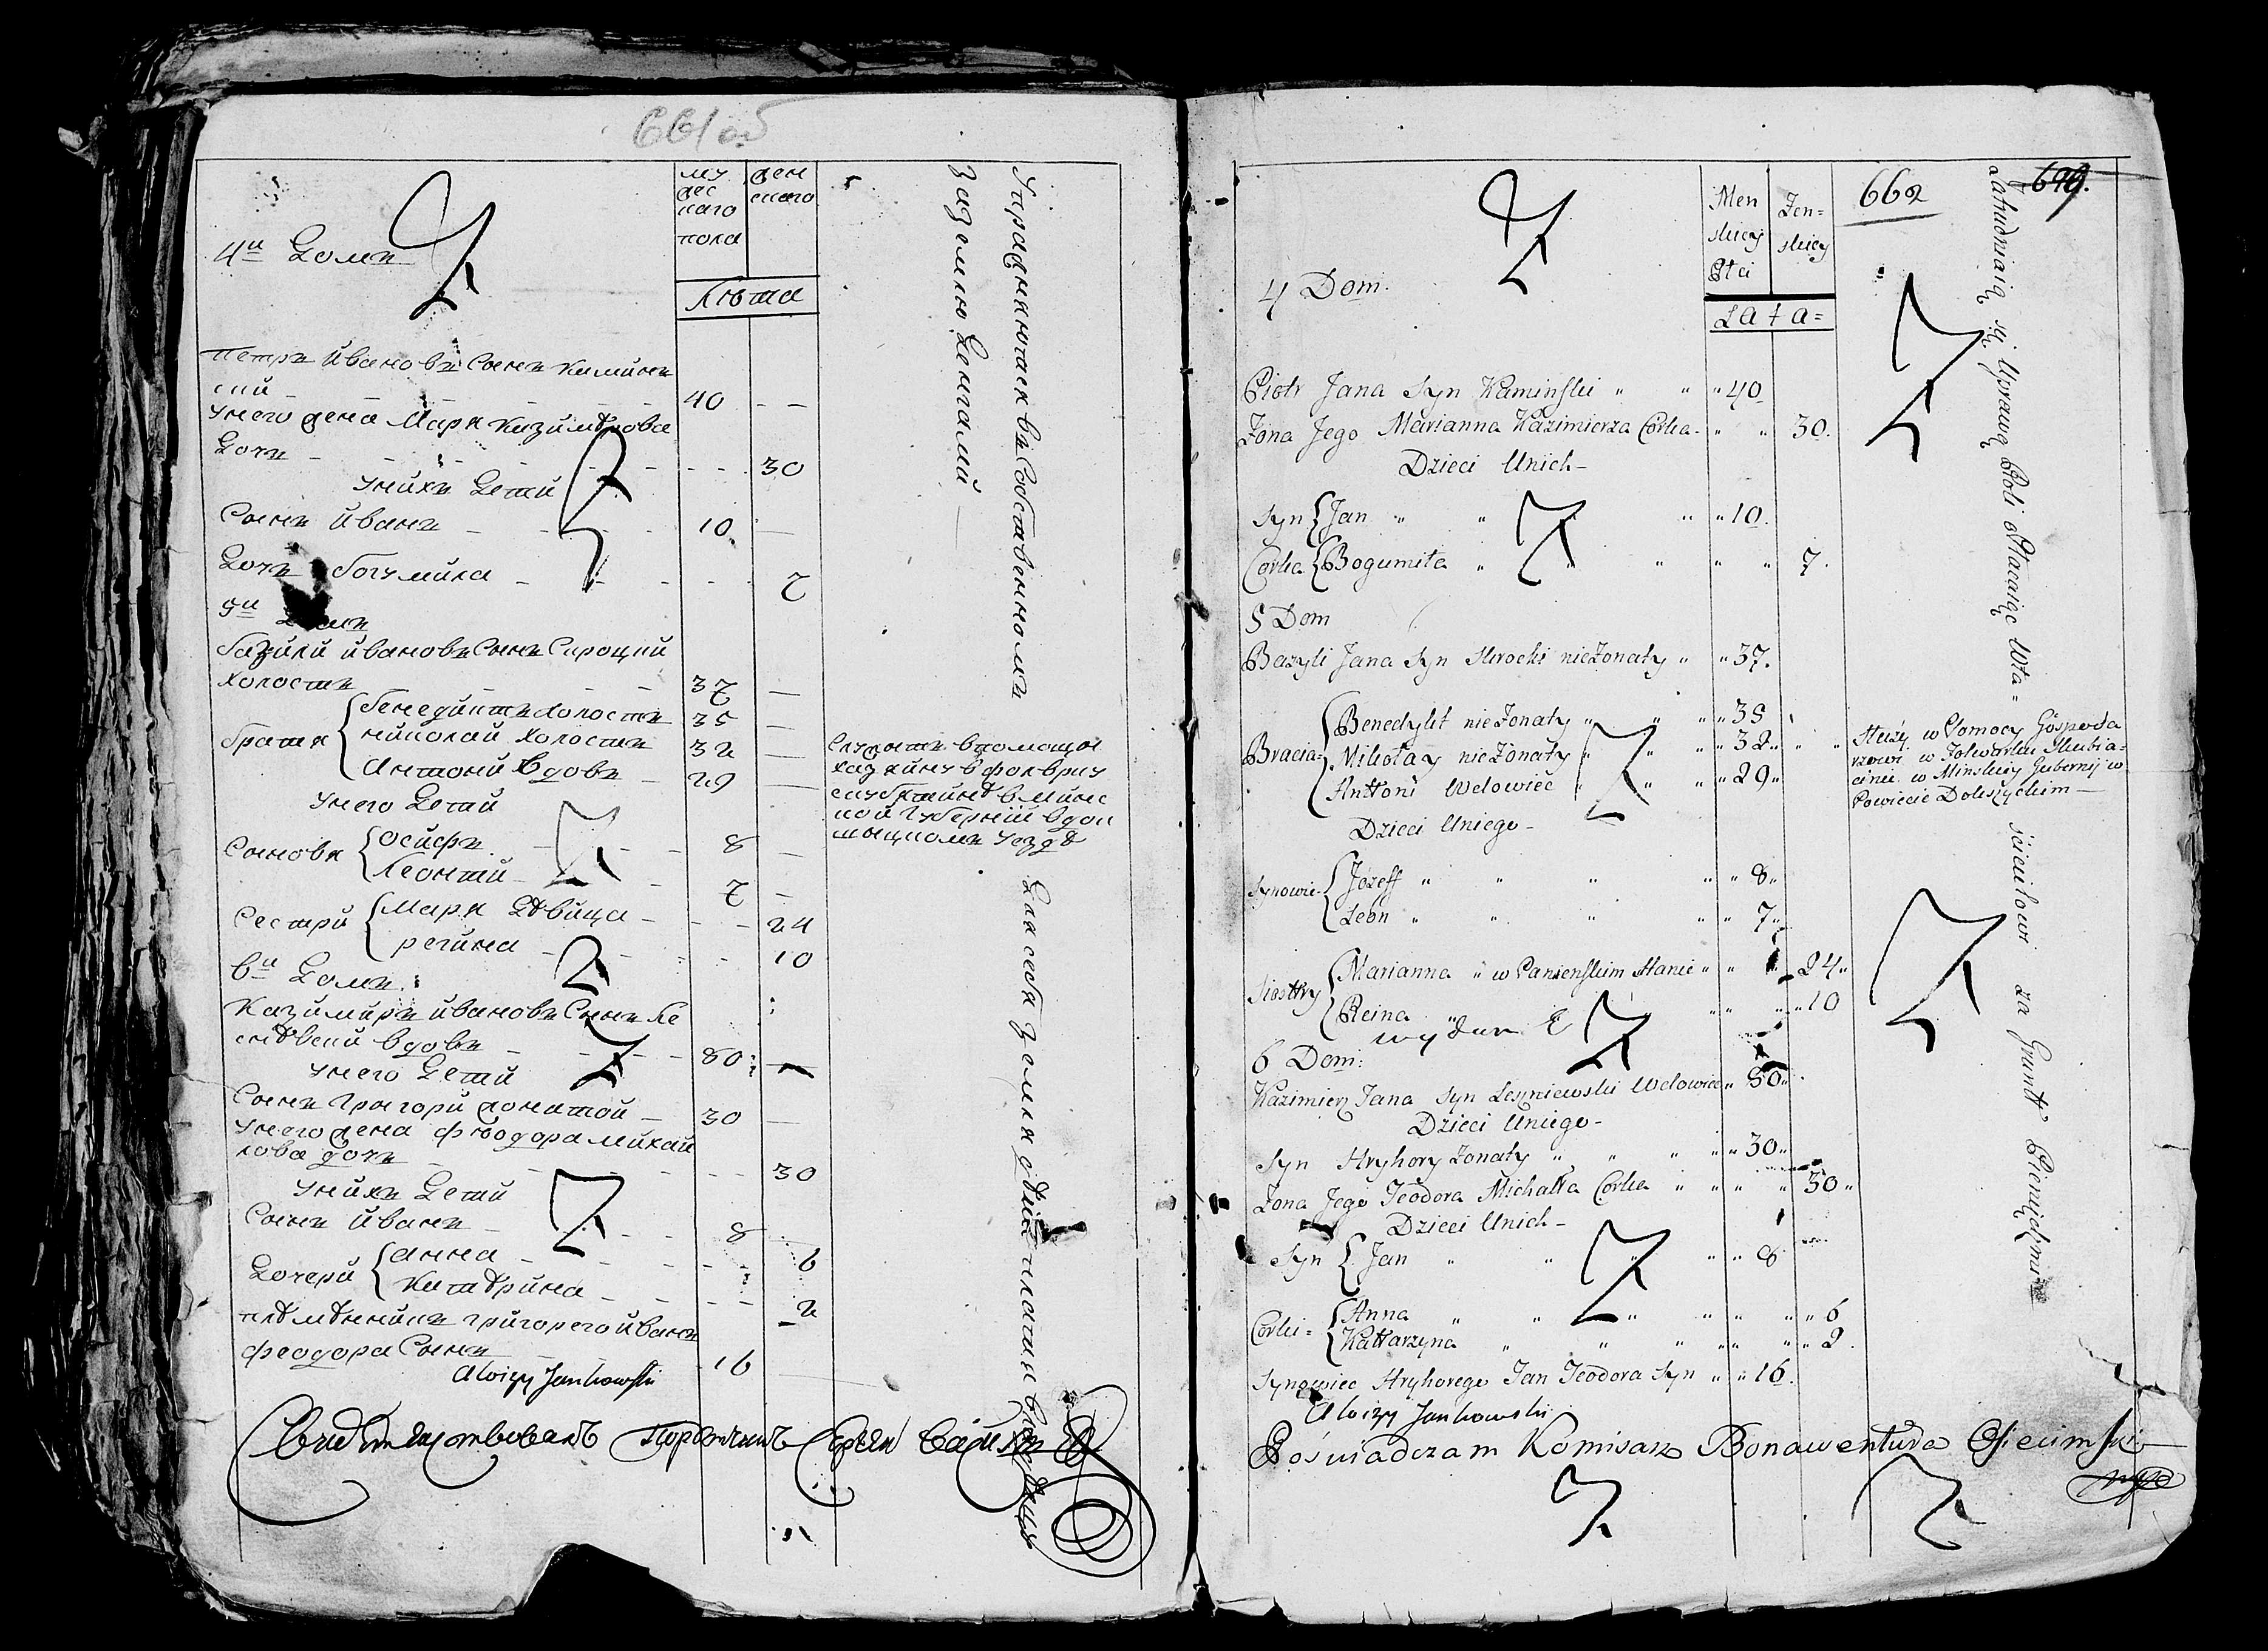 661 об
4й Домъ
му
жес
каго
пола
жен
скаго
Лѣта
Петръ Ивановъ Сынъ Каминъ
ский 40
у него жена Маря Казимѣрова
Дочъ 30
у нихъ Детий
Сынъ Иванъ 10
Дочъ богумила 7
5й Домъ
базили Ивановъ Сынъ Сироцкий
холостъ 37
братя
бенедиктъ холостъ 35
николай холостъ 32
Антоний вдовъ 29
у него Детий
Сыновя
Осифъ 8
Леонтий 7
Сестри
Маря Дѣвица 24
регина 10
6й Домъ
Казимиръ Ивановъ Сынъ Ле
вдовъ 80
у него Детий
Сынъ Григори жонатой 30
у него жена феодора Михай
лова дочъ 30
у нихъ Детий
Сынъ Иванъ 8
Дочери
анна 6
Катѣрина 2
племѣнникъ григорего Иванъ
феодора Сынъ 16
Aloizy Jankowski
Упражнаютася въ Собственномъ
За Землю Денгамй
Служатъ в помощы
хазяину в фолварку
в Минс
кой Губернии в
уездѣ
Для себя земля
Свидѣтелствовалъ Порутчикъ
662
699.
4 Dom.
Men
skiey
Płci
Zen=
skiey
Lata=
Piotr Jana Syn Kaminski 40
Zona Jego Marianna Kazimierza Corka 30.
Dzieci Unich
Syn Jan 10.
Corka Bogumiła 7.
5 Dom
Bazyli Jana Syn Skrocki nieżonaty 37.
Bracia
Benedykt nieżonaty 35
Mikołay nieżonaty 32
Anttoni Wdowiec 29
Dzieci Uniego
Synowie
Jozeff 8
Leon 7
Siosttry
Marianna w Panienskim Stanie 24
Reina 10
6 Dom:
Kazimierz Jana Syn Leszniewski Wdowiec 80
Dzieci Uniego
Syn Hryhory żonaty 30
Zona Jego Teodora Michałła Corka 30
Dzieci Unich
Syn Jan 8
Corki=
Anna 6
Kattarzyna 2.
Synowiec Hryhorego Jan Teodora Syn 16.
Zatrudniaią się Uprawą Roli Płacaiąc Wła=
ścicielowi za Grunt Pieniędzmi
Służy w Pomocy Gospoda
rzowi w Folwarku Skubia=
cinie w Minskiey Gubernij w
Powiecie
Aloizy Jankowski
Poświadczam Komisarz Bonawentura